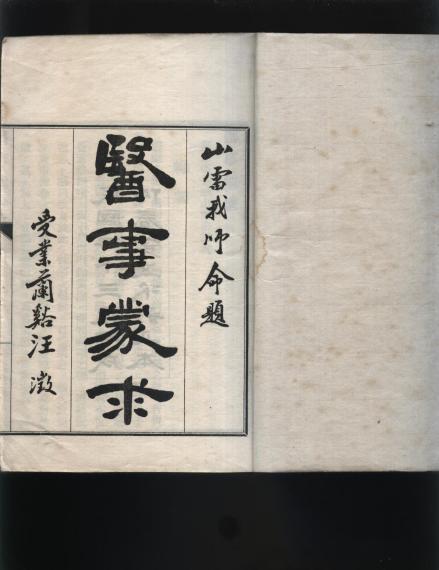 山雷我師命題
醫事蒙求
受業蘭谿汪澂